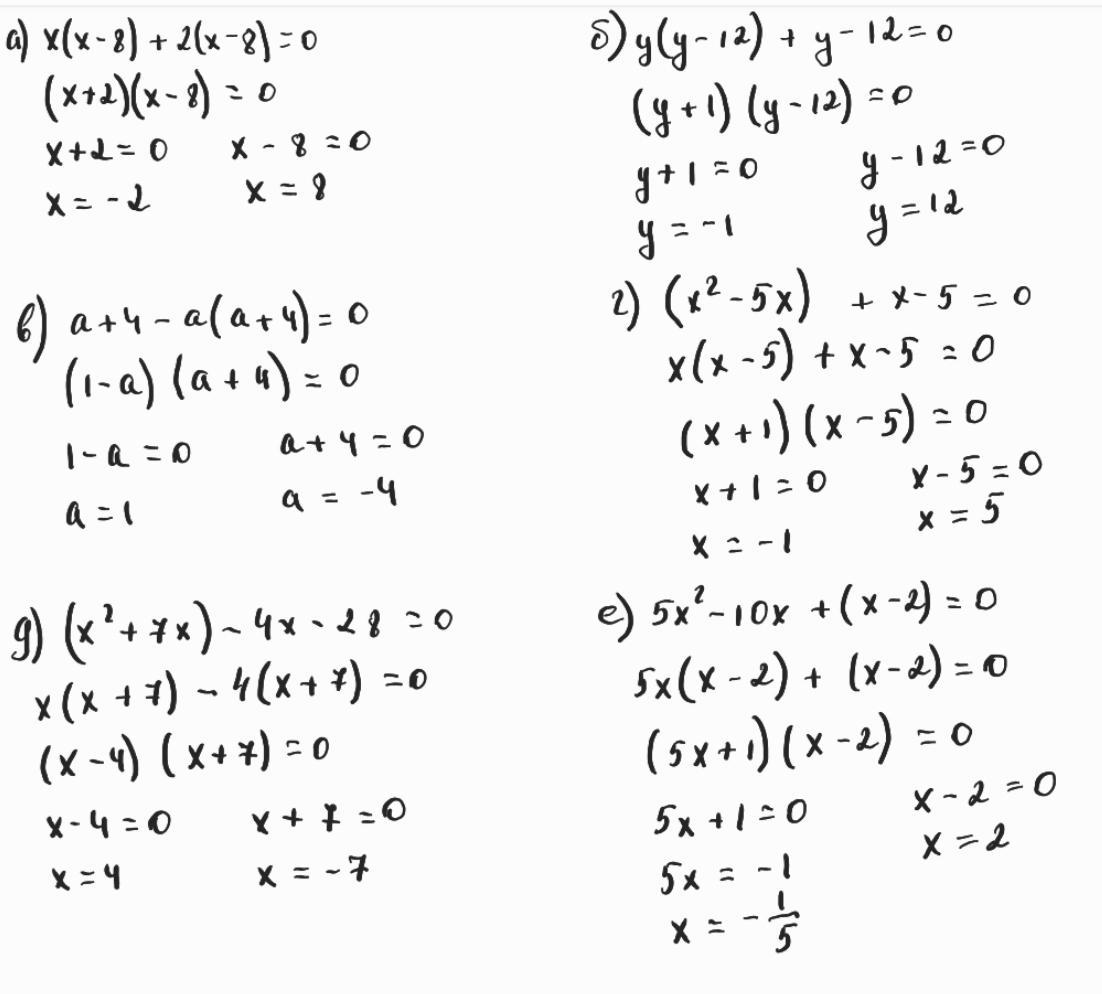 а) x(x-8) + 2(x-8) = 0
(x+2)(x-8) = 0
x+2 = 0    x - 8 = 0
x = -2    x = 8
б) y(y-12) + y - 12 = 0
(y+1)(y-12) = 0
y+1 = 0    y - 12 = 0
y = -1    y = 12
в) a+4 - a(a+4) = 0
(1-a)(a+4) = 0
1-a = 0    a+4 = 0
a = 1    a = -4
г) (x²-5x) + x-5 = 0
x(x-5) + x-5 = 0
(x+1)(x-5) = 0
x+1 = 0    x-5 = 0
x = -1    x = 5
д) (x²+7x) - 4x - 28 = 0
x(x+7) - 4(x+7) = 0
(x-4)(x+7) = 0
x-4 = 0    x+7 = 0
x = 4    x = -7
е) 5x²-10x + (x-2) = 0
5x(x-2) + (x-2) = 0
(5x+1)(x-2) = 0
5x+1 = 0    x-2 = 0
5x = -1    x = 2
x = -1/5